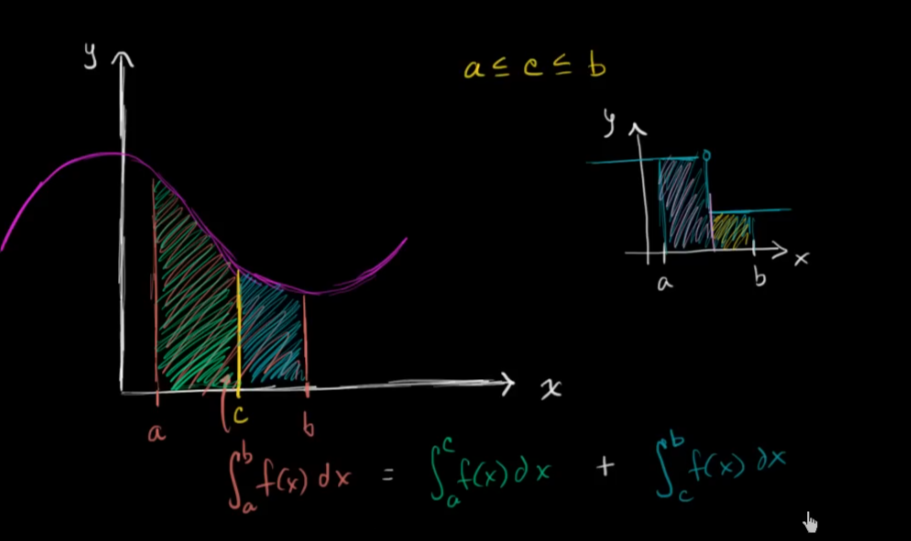 y
a ≤ c ≤ b
y
x
a
b
x
c
a
b
∫_a^b f(x) dx = ∫_a^c f(x) dx + ∫_c^b f(x) dx